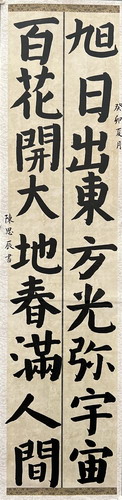 旭日出東方光弥宇宙
癸卯夏月
百花開大地春滿人間
陳思辰書